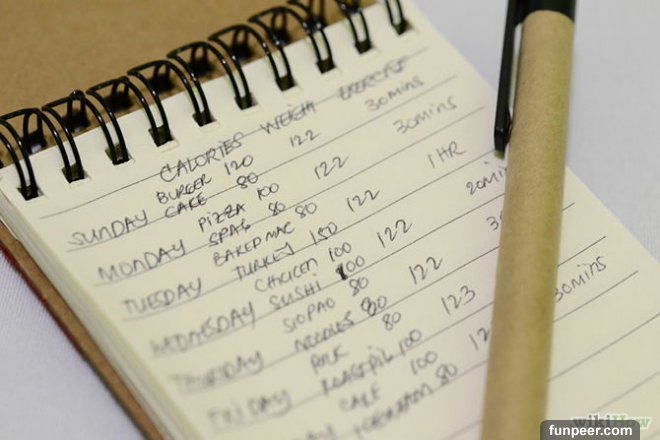 CALORIES WEIGH EXERCISE
BURGER 120 122 30mins
SUNDAY CAKE 80
PIZZA 100 122 30mins
MONDAY SPAG 80
BAKED MAC 80 122 1 HR
TUESDAY TURKEY 180
CHICKEN 100 122
WEDNESDAY SUSHI 100
SIOPAO 80 122
THURSDAY NOODLES 80
PORK 80 123
100
CAKE 100
80
30mins
wikiHow
funpeer.com